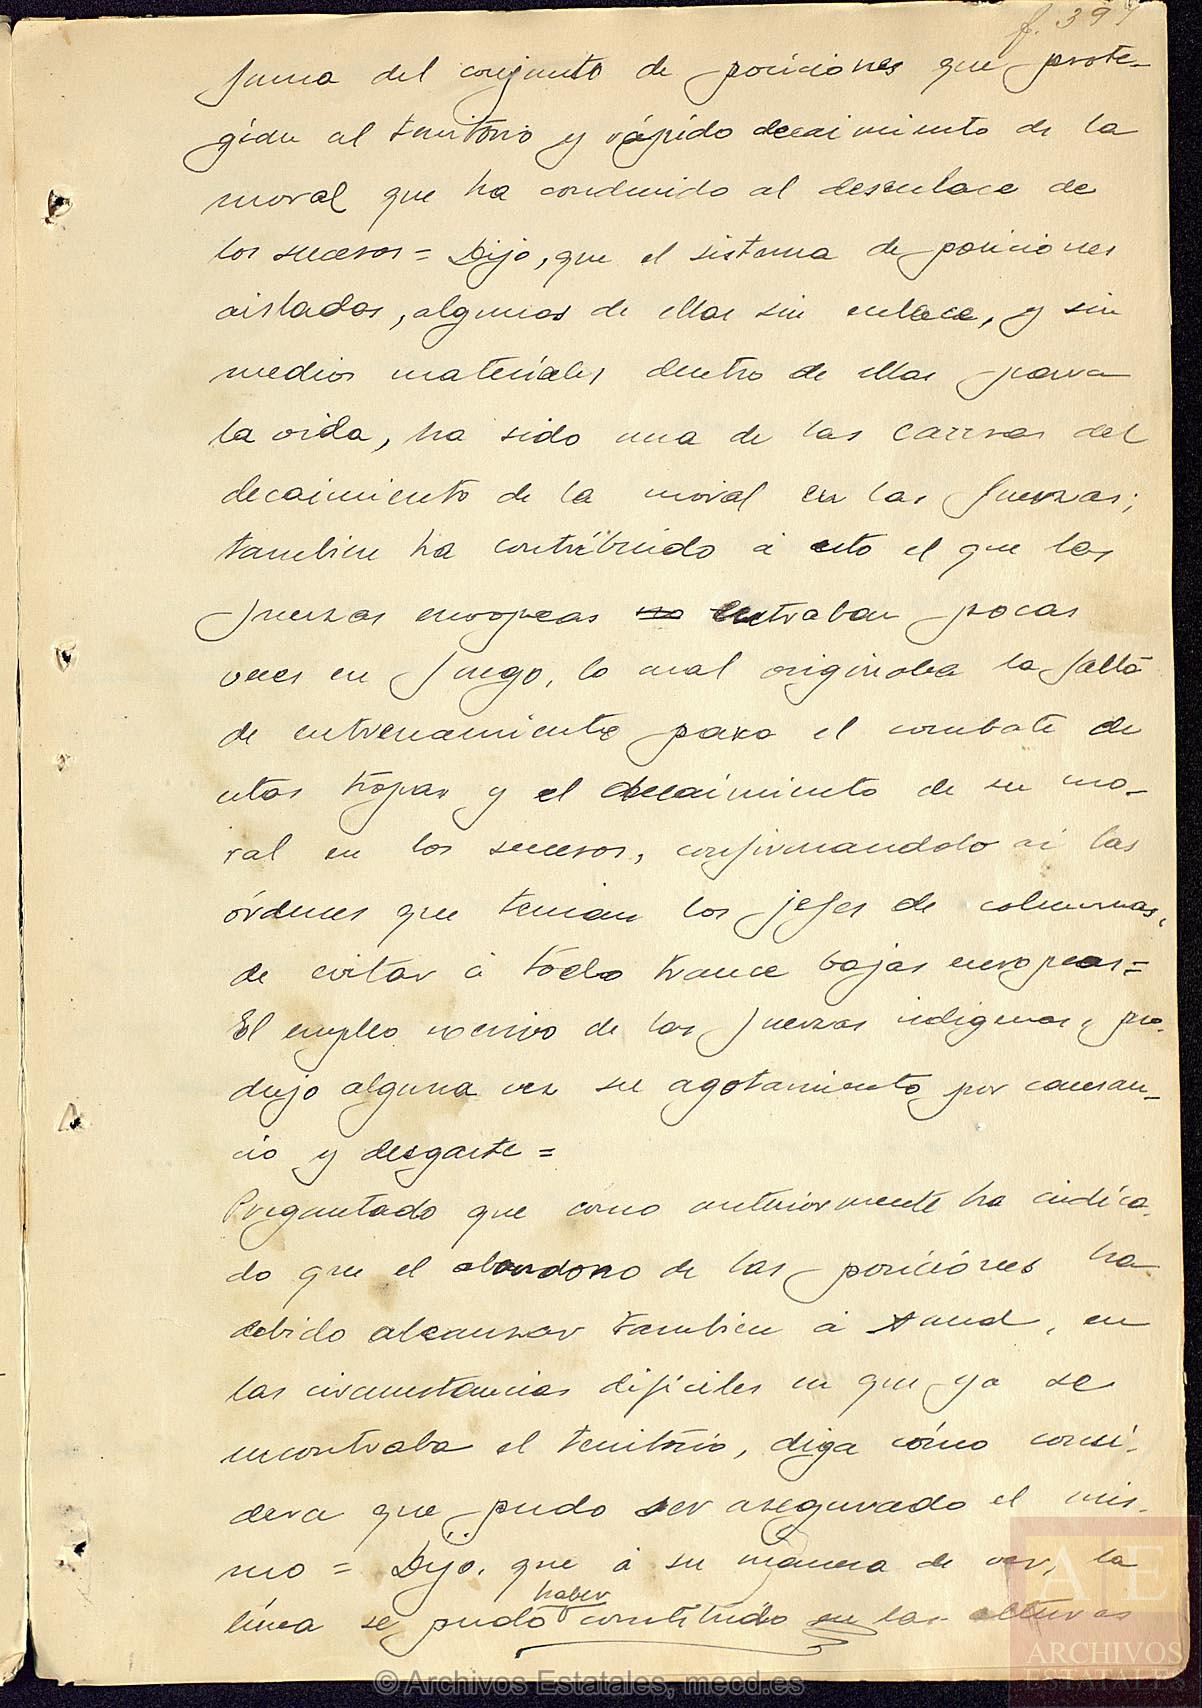 f. 397
fensa del conjunto de posiciones que prote-
gían al territorio y rápido decaimiento de la
moral que ha conducido al desenlace de
los sucesos = Dijo, que el sistema de posiciones
aisladas, algunas de ellas sin enlace, y sin
medios materiales dentro de ellas para
la vida, ha sido una de las causas del
decaimiento de la moral en las fuerzas;
tambien ha contribuido á esto el que las
fuerzas europeas no entraban pocas
veces en fuego, lo cual originaba la falta
de entrenamiento para el combate de
estas tropas y el decaimiento de su mo-
ral en los sucesos, confirmandolo asi las
órdenes que tenian los jefes de columnas,
de evitar á todo trance bajas europeas =
El empleo excesivo de las fuerzas indigenas, pro-
dujo alguna vez su agotamiento por cansan-
cio y desgaste =
Preguntado que como anteriormente ha indica-
do que el abandono de las posiciónes ha
debido alcanzar tambien á Annual, en
las circunstancias dificiles en que ya se
encontraba el territorio, diga cómo consi-
dera que pudo ser asegurado el mis-
mo = Dijo, que á su manera de ver, la
haber
línea se pudo constituido en las alturas
© Archivos Estatales, mecd.es
AE
ARCHIVOS
ESTATALES